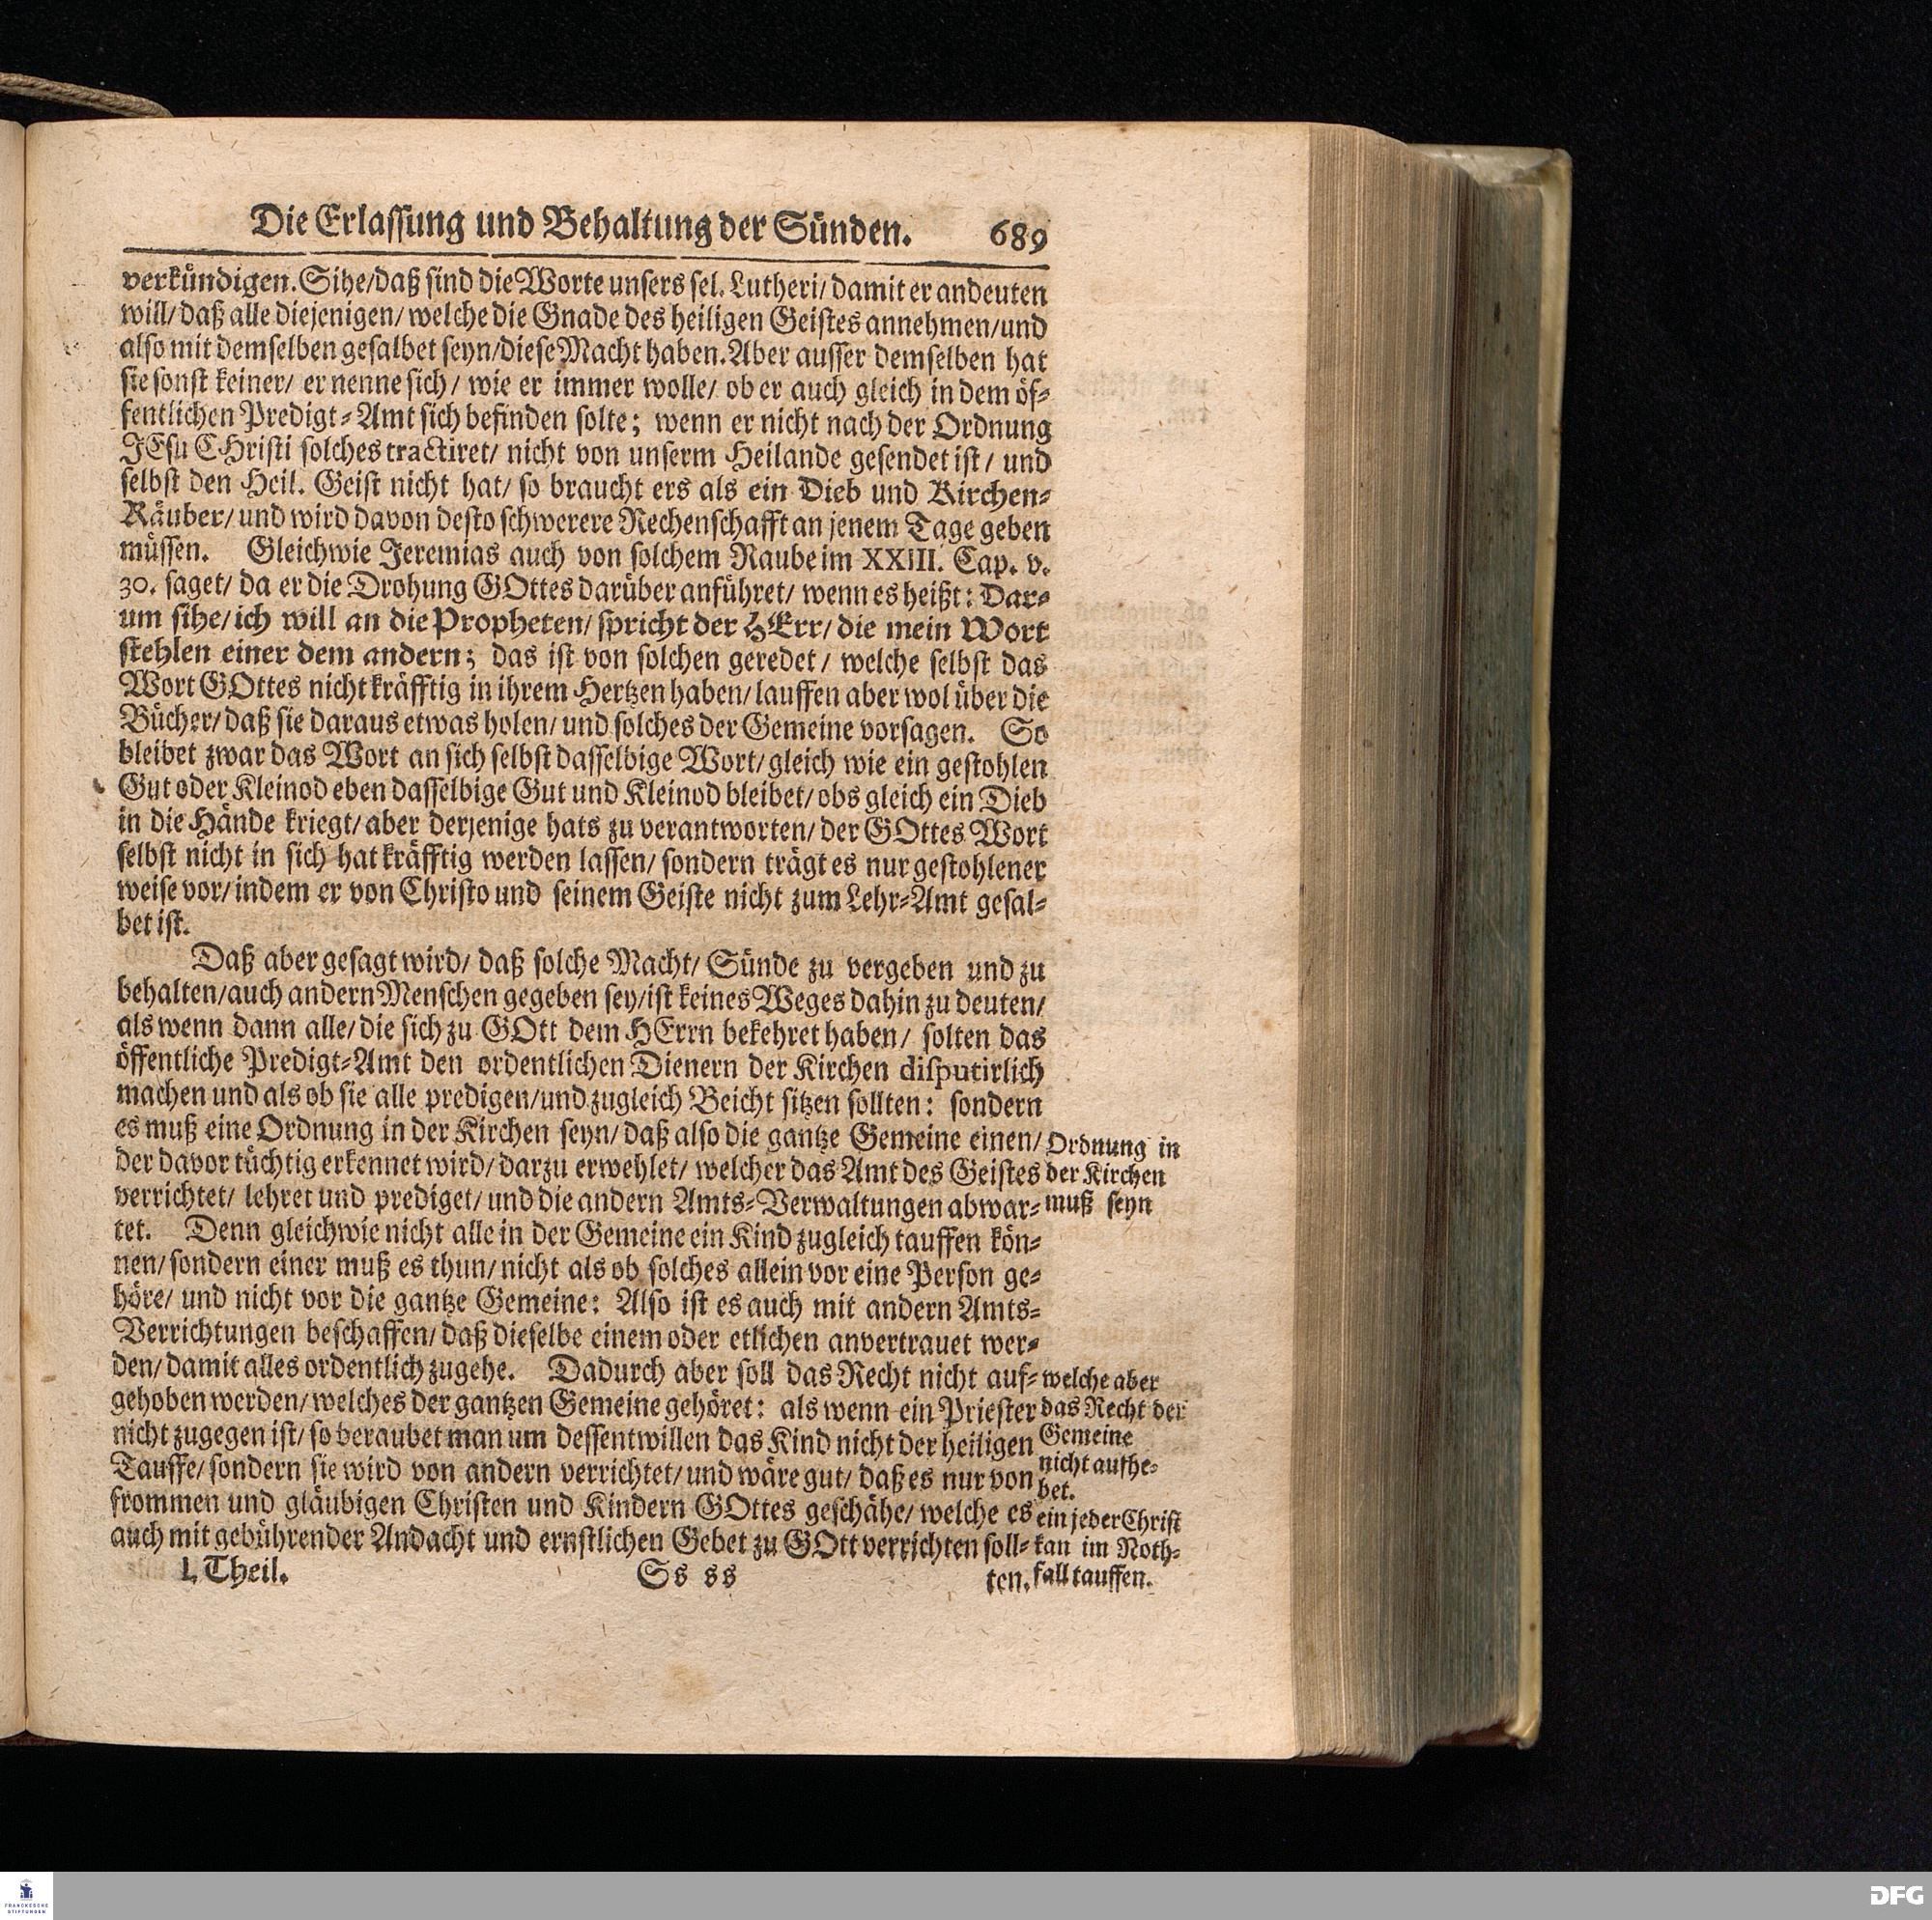 Die Erlassung und Behaltung der Sünden. 689
verkündigen. Sihe/daß sind die Worte unsers sel. Lutheri/ damit er andeuten
will/ daß alle diejenigen/ welche die Gnade des heiligen Geistes annehmen/und
also mit demselben gesalbet seyn/diese Macht haben. Aber ausser demselben hat
sie sonst keiner/ er nenne sich/ wie er immer wolle/ ob er auch gleich in dem öf-
fentlichen Predigt-Amt sich befinden solte; wenn er nicht nach der Ordnung
JEsu CHristi solches tractiret/ nicht von unserm Heilande gesendet ist/ und
selbst den Heil. Geist nicht hat/ so braucht ers als ein Dieb und Kirchen-
Räuber/ und wird davon desto schwerere Rechenschafft an jenem Tage geben
müssen. Gleichwie Jeremias auch von solchem Raube im XXIII. Cap. v.
30. saget/ da er die Drohung GOttes darüber anführet/ wenn es heißt: Dar-
um sihe/ich will an die Propheten/ spricht der HErr/ die mein Wort
stehlen einer dem andern; das ist von solchen geredet/ welche selbst das
Wort GOttes nicht kräfftig in ihrem Hertzen haben/ lauffen aber wol über die
Bücher/ daß sie daraus etwas holen/ und solches der Gemeine vorsagen. So
bleibet zwar das Wort an sich selbst dasselbige Wort/ gleich wie ein gestohlen
Gut oder Kleinod eben dasselbige Gut und Kleinod bleibet/ obs gleich ein Dieb
in die Hände kriegt/ aber derjenige hats zu verantworten/ der GOttes Wort
selbst nicht in sich hat kräfftig werden lassen/ sondern trägt es nur gestohlener
weise vor/ indem er von Christo und seinem Geiste nicht zum Lehr-Amt gesal-
bet ist.
Daß aber gesagt wird/ daß solche Macht/ Sünde zu vergeben und zu
behalten/auch andern Menschen gegeben sey/ist keines Weges dahin zu deuten/
als wenn dann alle/ die sich zu GOtt dem HErrn bekehret haben/ solten das
öffentliche Predigt-Amt den ordentlichen Dienern der Kirchen disputirlich
machen und als ob sie alle predigen/und zugleich Beicht sitzen sollten: sondern
es muß eine Ordnung in der Kirchen seyn/ daß also die gantze Gemeine einen/
der davor tüchtig erkennet wird/ darzu erwehlet/ welcher das Amt des Geistes
verrichtet/ lehret und prediget/ und die andern Amts-Verwaltungen abwar-
tet. Denn gleichwie nicht alle in der Gemeine ein Kind zugleich tauffen kön-
nen/ sondern einer muß es thun/ nicht als ob solches allein vor eine Person ge-
höre/ und nicht vor die gantze Gemeine: Also ist es auch mit andern Amts-
Verrichtungen beschaffen/ daß dieselbe einem oder etlichen anvertrauet wer-
den/ damit alles ordentlich zugehe. Dadurch aber soll das Recht nicht auf-
gehoben werden/ welches der gantzen Gemeine gehöret: als wenn ein Priester
nicht zugegen ist/ so beraubet man um dessentwillen das Kind nicht der heiligen
Tauffe/ sondern sie wird von andern verrichtet/ und wäre gut/ daß es nur von
frommen und gläubigen Christen und Kindern GOttes geschähe/ welche es
auch mit gebührender Andacht und ernstlichen Gebet zu GOtt verrichten soll-
I. Theil. Ss ss ten.
Ordnung in
der Kirchen
muß seyn
welche aber
das Recht der
Gemeine
nicht aufhe-
bet.
ein jeder Christ
kan im Noth-
fall tauffen.
FRANCKESCHE
STIFTUNGEN
DFG